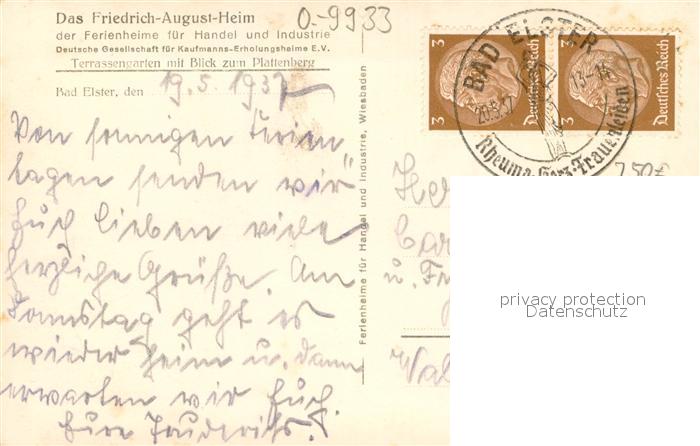 Das Friedrich-August-Heim
der Ferienheime für Handel und Industrie
Deutsche Gesellschaft für Kaufmanns-Erholungsheime E.V.
Terrassengarten mit Blick zum Plattenberg
Bad Elster, den 19.5.1937
0-9933
Von sonnigen Ferien
tagen senden wir
Euch lieben viele
herzliche Grüße. Am
Sonnstag geht es
wieder heim u. dann
erwarten wir Euch.
Eure
Ferienheime für Handel und Industrie, Wiesbaden
3 Deutsches Reich
3 Deutsches Reich
BAD ELSTER
20.5.37 13-14
Rheuma-Herz-Frauenleiden
250€
u. Fr
Wal
privacy protection
Datenschutz